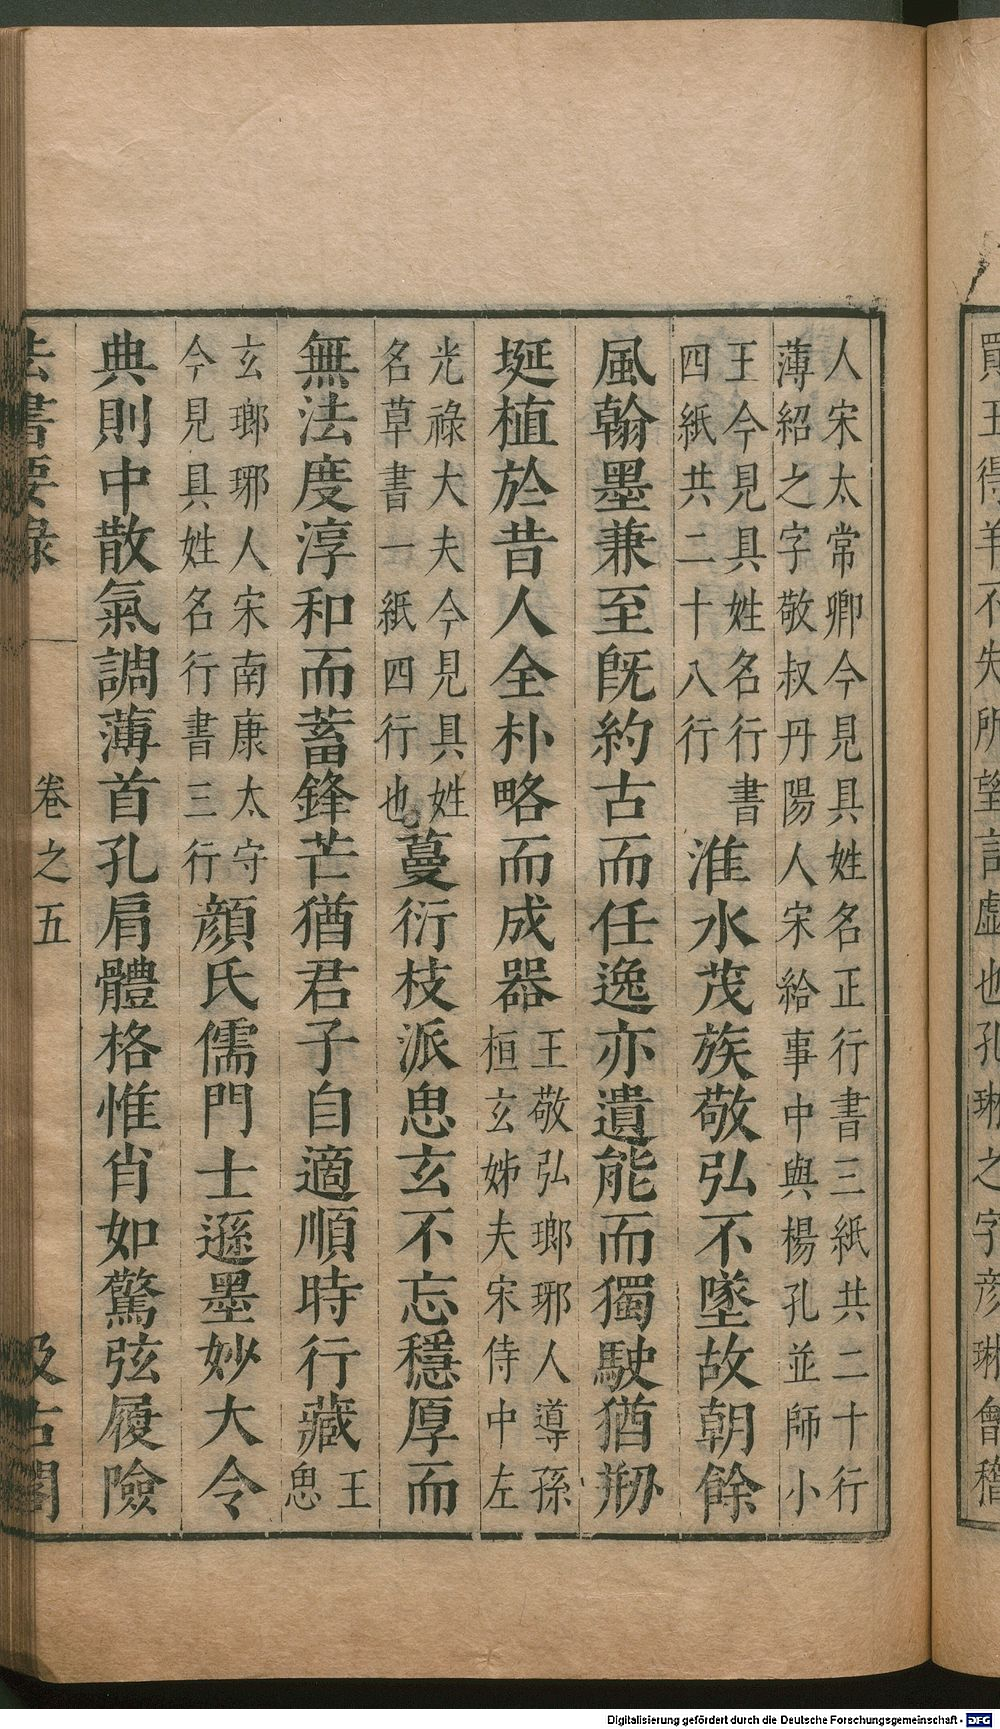 賈五得羊不失所望許虛也孔琳之字彥琳會稽
人宋太常卿今見具姓名正行書三紙共二十行
薄紹之字敬叔丹陽人宋給事中與楊孔並師小
王今見具姓名行書
四紙共二十八行
淮水茂族敬弘不墜故朝餘
風翰墨兼至既約古而任逸亦遺能而獨駛猶剏
埏植於昔人全朴略而成器
王敬弘瑯琊人導孫
桓玄姊夫宋侍中左
光祿大夫今見具姓
名草書一紙四行也
蔓衍枝派思玄不忘穩厚而
無法度淳和而蓄鋒芒猶君子自適順時行藏
王
思
玄瑯琊人宋南康太守
今見具姓名行書三行
顏氏儒門士遜墨妙大令
典則中散氣調薄首孔肩體格惟肖如驚弦履險
法書要錄
卷之五
汲古閣
Digitalisierung gefördert durch die Deutsche Forschungsgemeinschaft - DFG